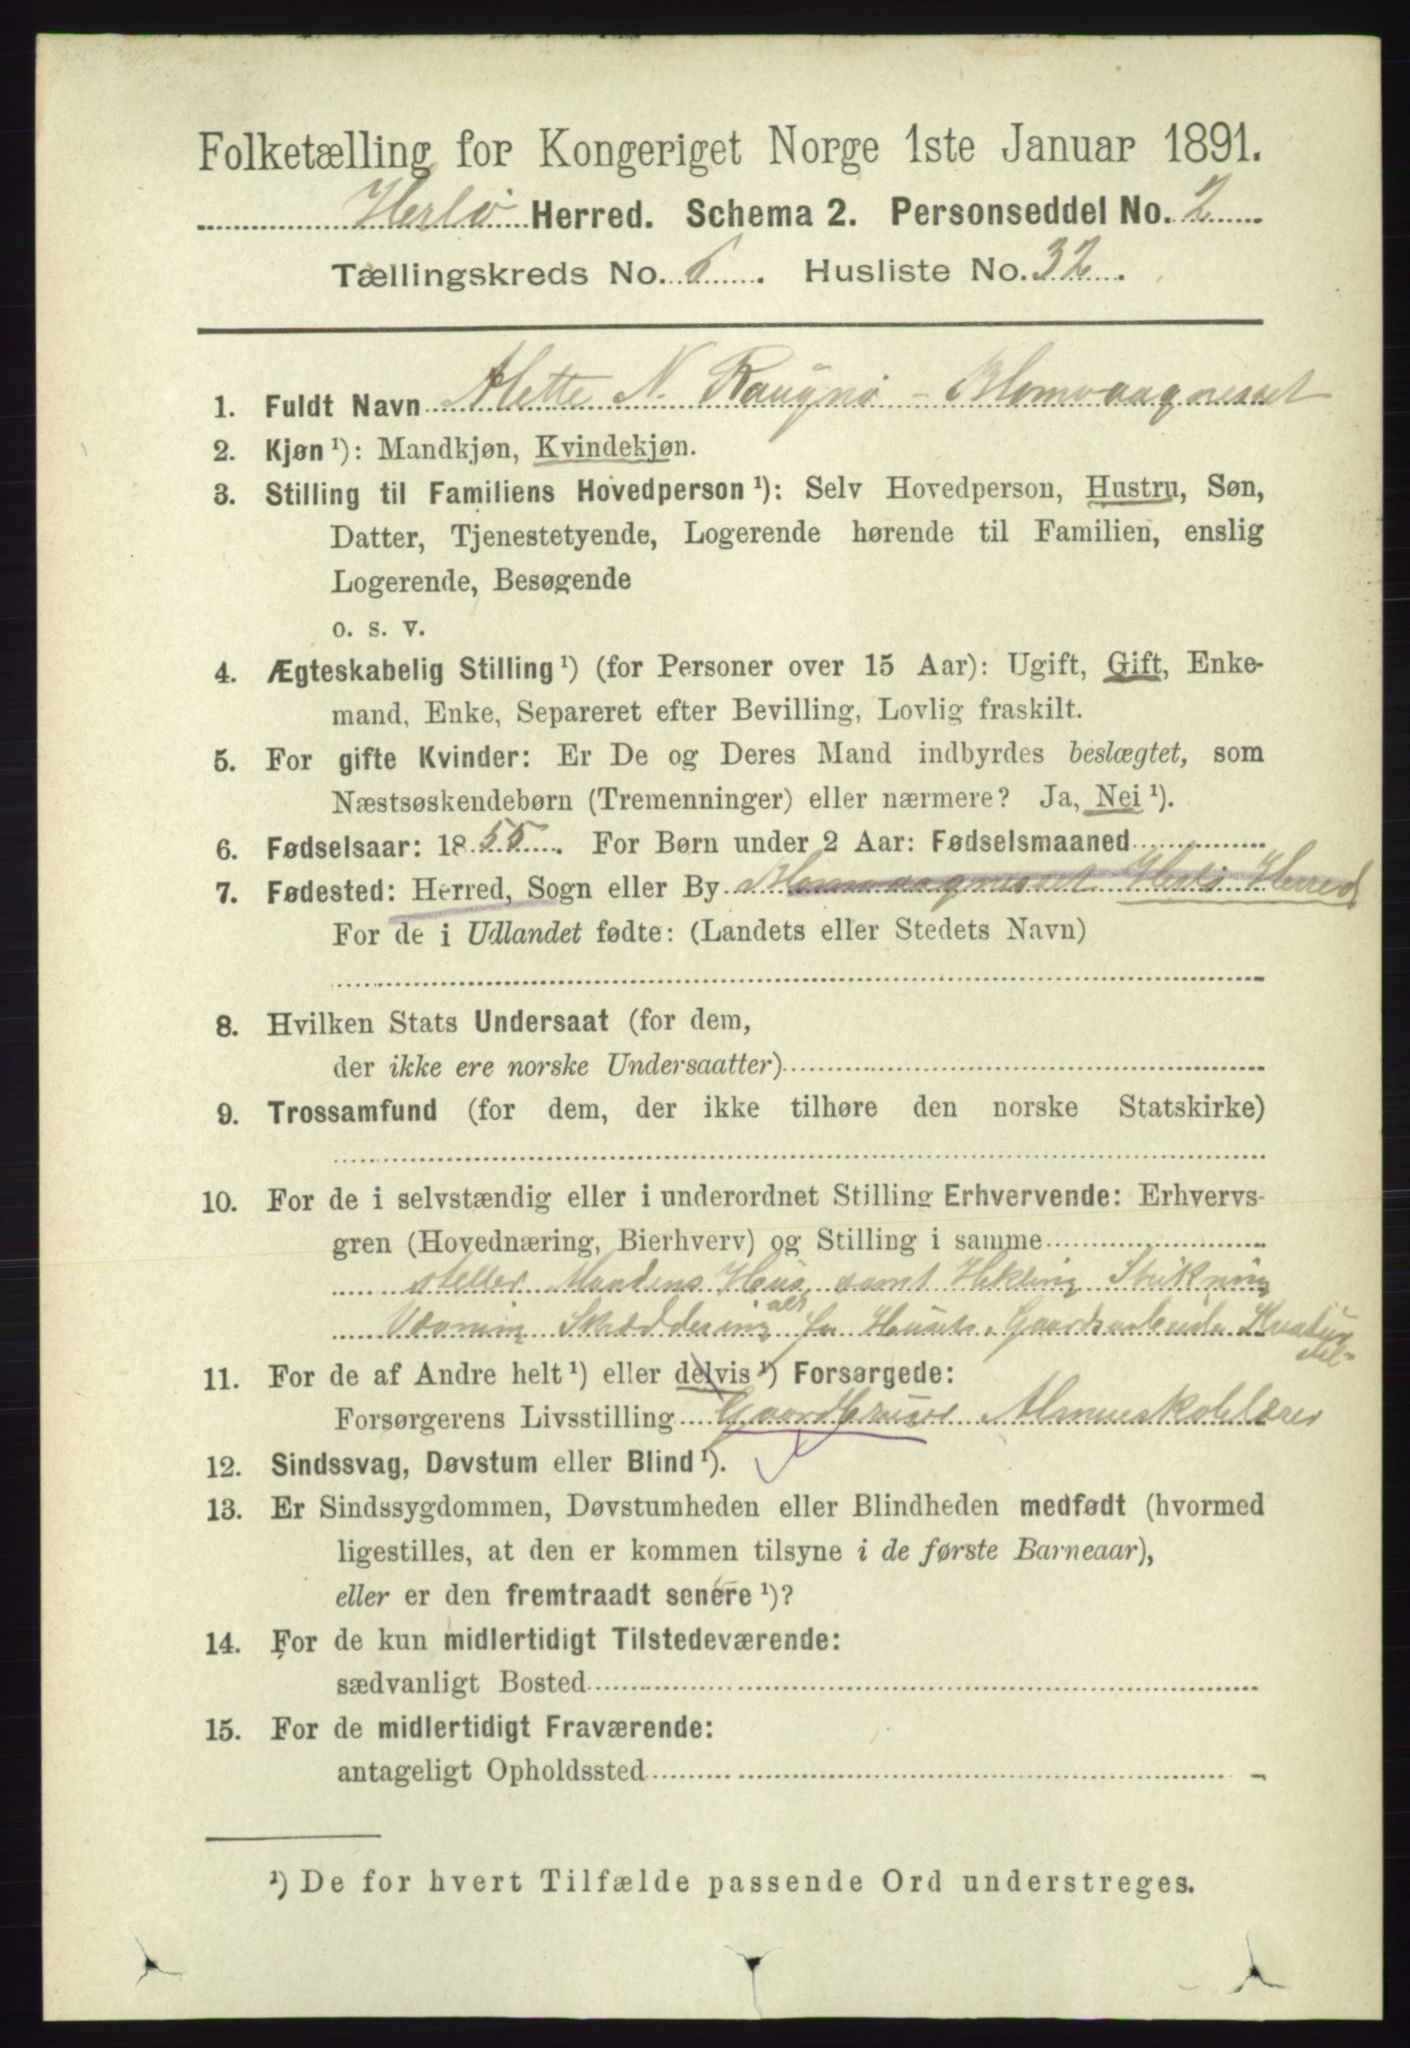 Folketælling for Kongeriget Norge 1ste Januar 1891.
Herlø Herred. Schema 2. Personseddel No. 2
Tællingskreds No. 6. Husliste No. 32.
1. Fuldt Navn Alette N. Raugnø - Blomvaagnesset
2. Kjøn ¹): Mandkjøn, Kvindekjøn.
3. Stilling til Familiens Hovedperson ¹): Selv Hovedperson, Hustru, Søn,
Datter, Tjenestetyende, Logerende hørende til Familien, enslig
Logerende, Besøgende
o. s. v.
4. Ægteskabelig Stilling ¹) (for Personer over 15 Aar): Ugift, Gift, Enke-
mand, Enke, Separeret efter Bevilling, Lovlig fraskilt.
5. For gifte Kvinder: Er De og Deres Mand indbyrdes beslægtet, som
Næstsøskendebørn (Tremenninger) eller nærmere? Ja, Nei ¹).
6. Fødselsaar: 1855. For Børn under 2 Aar: Fødselsmaaned
7. Fødested: Herred, Sogn eller By Blomvaagnesset Herlø Herred
For de i Udlandet fødte: (Landets eller Stedets Navn)
8. Hvilken Stats Undersaat (for dem,
der ikke ere norske Undersaatter)
9. Trossamfund (for dem, der ikke tilhøre den norske Statskirke)
10. For de i selvstændig eller i underordnet Stilling Erhvervende: Erhvervs-
gren (Hovednæring, Bierhverv) og Stilling i samme
steller Mandens Hus, samt Hekling Strikning
Vævning Skræddering alt for Huset, Gaardsarbeide Kreatur
stel-
11. For de af Andre helt ¹) eller delvis ¹) Forsørgede:
Forsørgerens Livsstilling Gaardbruger Almueskolelærer
12. Sindssvag, Døvstum eller Blind ¹).
13. Er Sindssygdommen, Døvstumheden eller Blindheden medfødt (hvormed
ligestilles, at den er kommen tilsyne i de første Barneaar),
eller er den fremtraadt senere ¹)?
14. For de kun midlertidigt Tilstedeværende:
sædvanligt Bosted
15. For de midlertidigt Fraværende:
antageligt Opholdssted
¹) De for hvert Tilfælde passende Ord understreges.